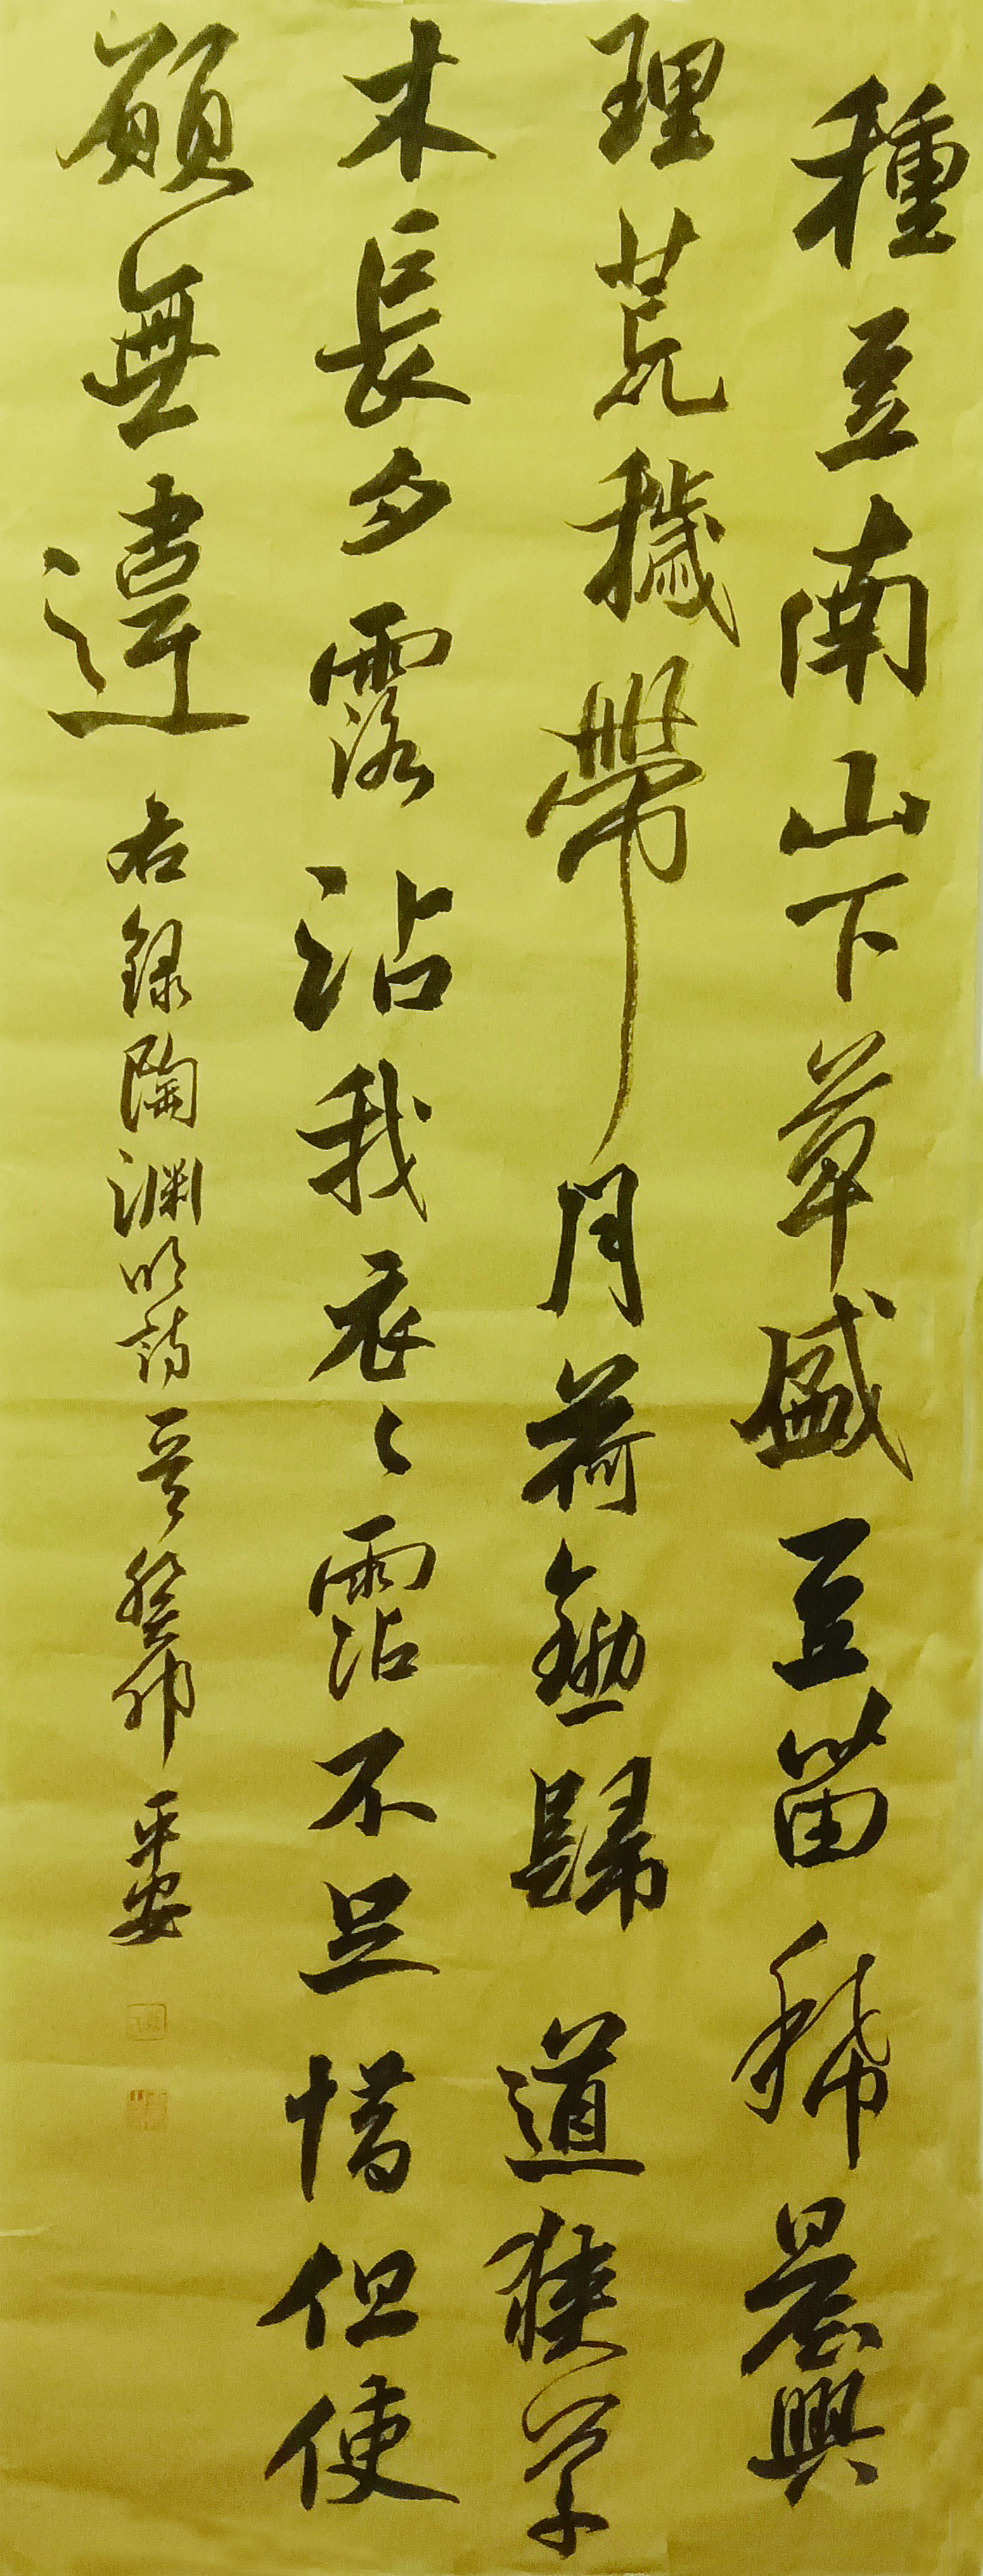 種豆南山下草盛豆苗稀晨興
理荒穢帶月荷鋤歸道狹草
木長夕露沾我衣〻霑不足惜但使
願無違 右錄陶淵明詩一首 癸卯 平安